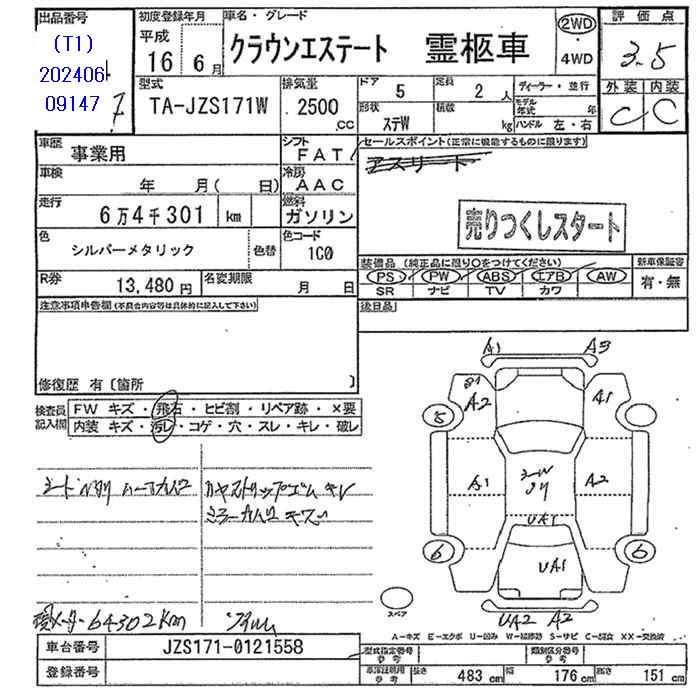 出品番号 初度登録年月 車名・グレード 評価点
(T1) 平成 2WD
202406 16 6月 クラウンエステート 霊柩車 ・4WD 3.5
09147 7 型式 排気量 ドア 定員 ディーラー・並行 外装 内装
TA-JZS171W 2500cc 5 2人 モデル年式 年 C C
形状 積載
ステW kg ハンドル 左・右
車歴 事業用 シフト FAT セールスポイント(正常に機能するものに限ります)
車検 年 月( 日) 冷房 AAC アスリート
走行 6万4千301 km 燃料 ガソリン 売りつくしスタート
色 シルバーメタリック 色替 色コード 1C0
装備品(純正品に限り○をつけてください) 新車保証書
R券 13,480円 名変期限 月 日 PS PW ABS エアB AW 有・無
SR ナビ TV カワ
注意事項申告欄(不具合内容等は具体的に記入して下さい) 後日品
修復歴 有〔箇所 〕
検査員記入欄 FW キズ・飛石・ヒビ割・リペア跡・×要
内装 キズ・汚レ・コゲ・穴・スレ・キレ・破レ
A1 A3
S1 A2 A1
5
A1 A2
UA1
6 UA1 6
スペア
UA2 A2
64302km
A-キズ E-エクボ U-凹み W-補修跡 S-サビ C-腐食 XX-交換済
車台番号 JZS171-0121558 型式指定番号 参考 類別区分番号 参考
登録番号 長さ 483 cm 幅 176 cm 高さ 151 cm